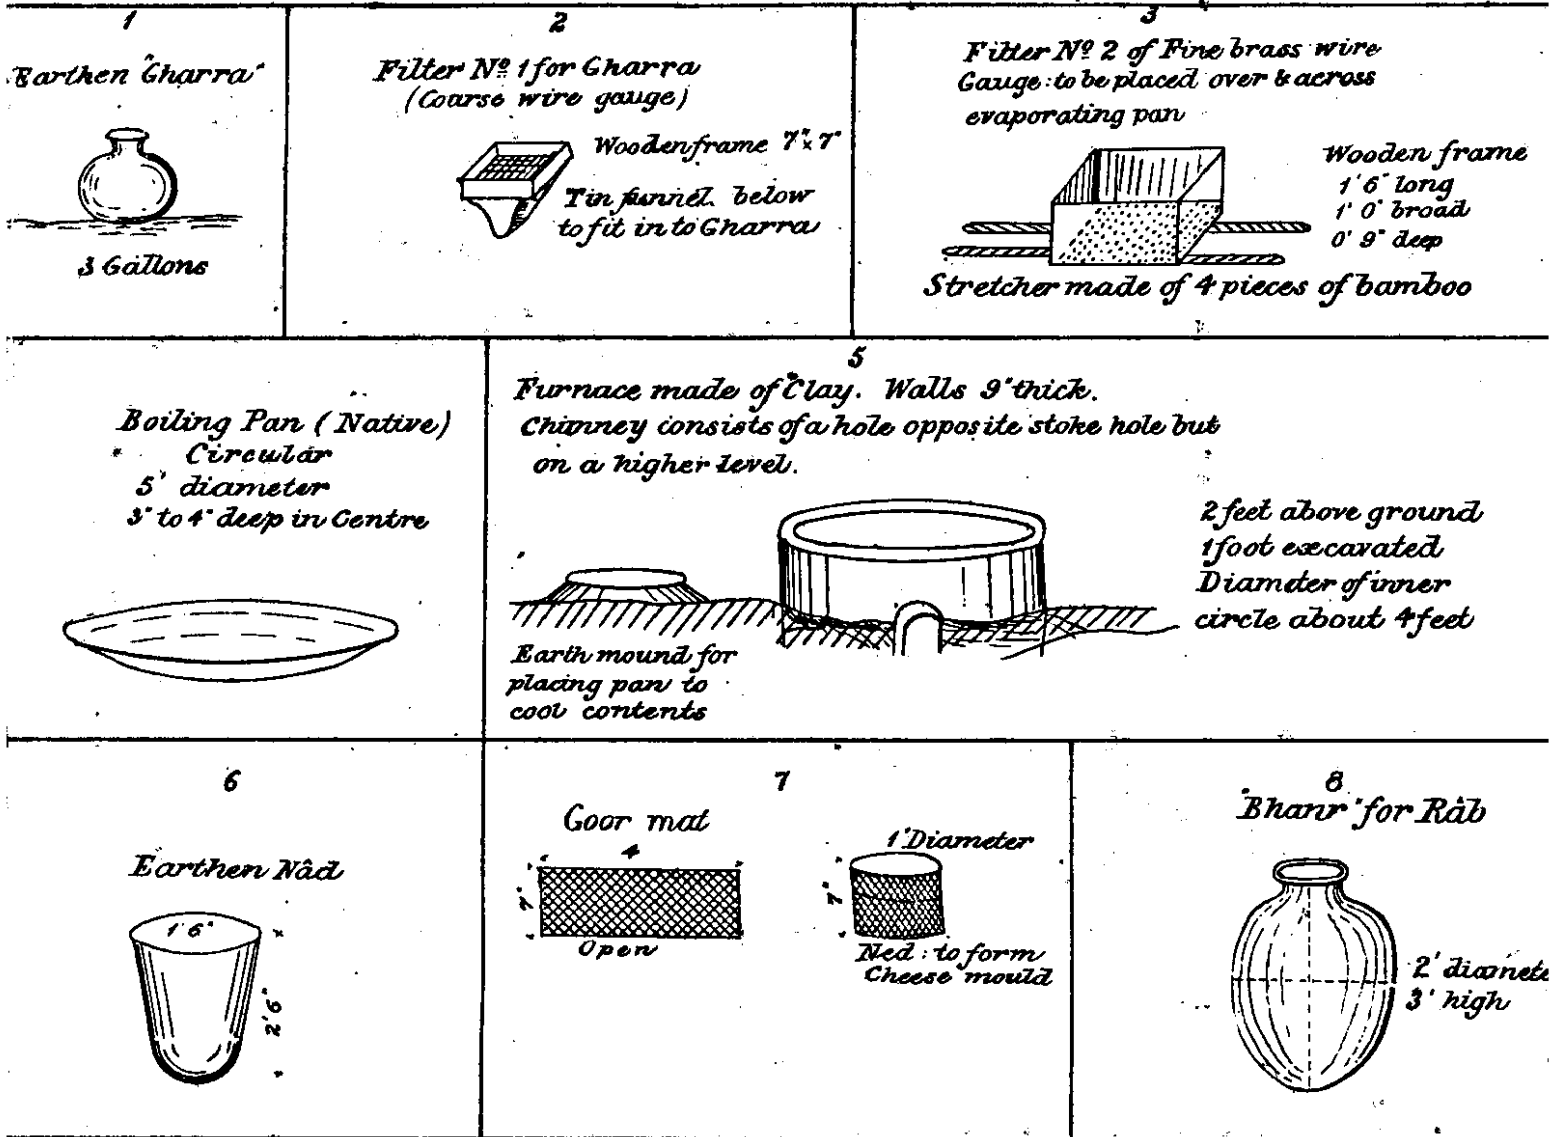 1
Earthen "Gharra"
3 Gallons
2
Filter Nº 1 for Gharra
(Coarse wire gauge)
Wooden frame 7" x 7"
Tin funnel below
to fit in to Gharra
3
Filter Nº 2 of Fine brass wire
Gauge: to be placed over & across
evaporating pan
Wooden frame
1' 6" long
1' 0" broad
0' 9" deep
Stretcher made of 4 pieces of bamboo
Boiling Pan (Native)
Circular
5' diameter
3" to 4" deep in Centre
5
Furnace made of Clay. Walls 9" thick.
Chimney consists of a hole opposite stoke hole but
on a higher level.
2 feet above ground
1 foot excavated
Diameter of inner
circle about 4 feet
Earth mound for
placing pan to
cool contents
6
Earthen Nâd
1' 6"
2' 6"
7
Goor mat
4
7"
Open
1' Diameter
7"
Ned: to form
Cheese mould
8
"Bhanr" for Râb
2' diamete
3' high